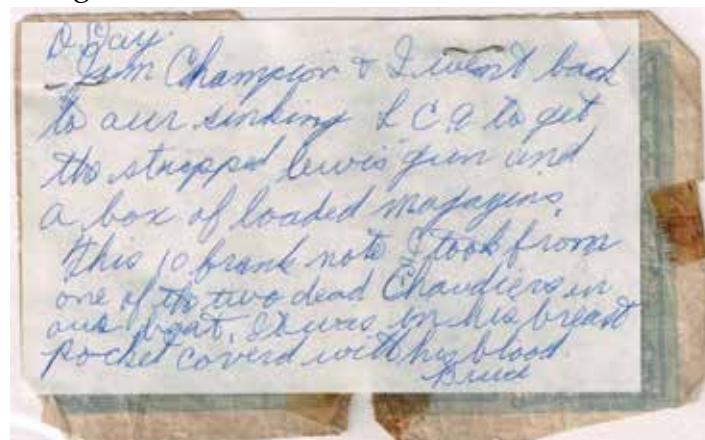 D Day.
Jim Champion & I went back
to our sinking L C A to get
the stripped lewis gun and
a box of loaded magazins
this 10 frank note I took from
one of the two dead Chaudiers in
our boat, It was in his breast
pocket coverd with his blood.
Bruce